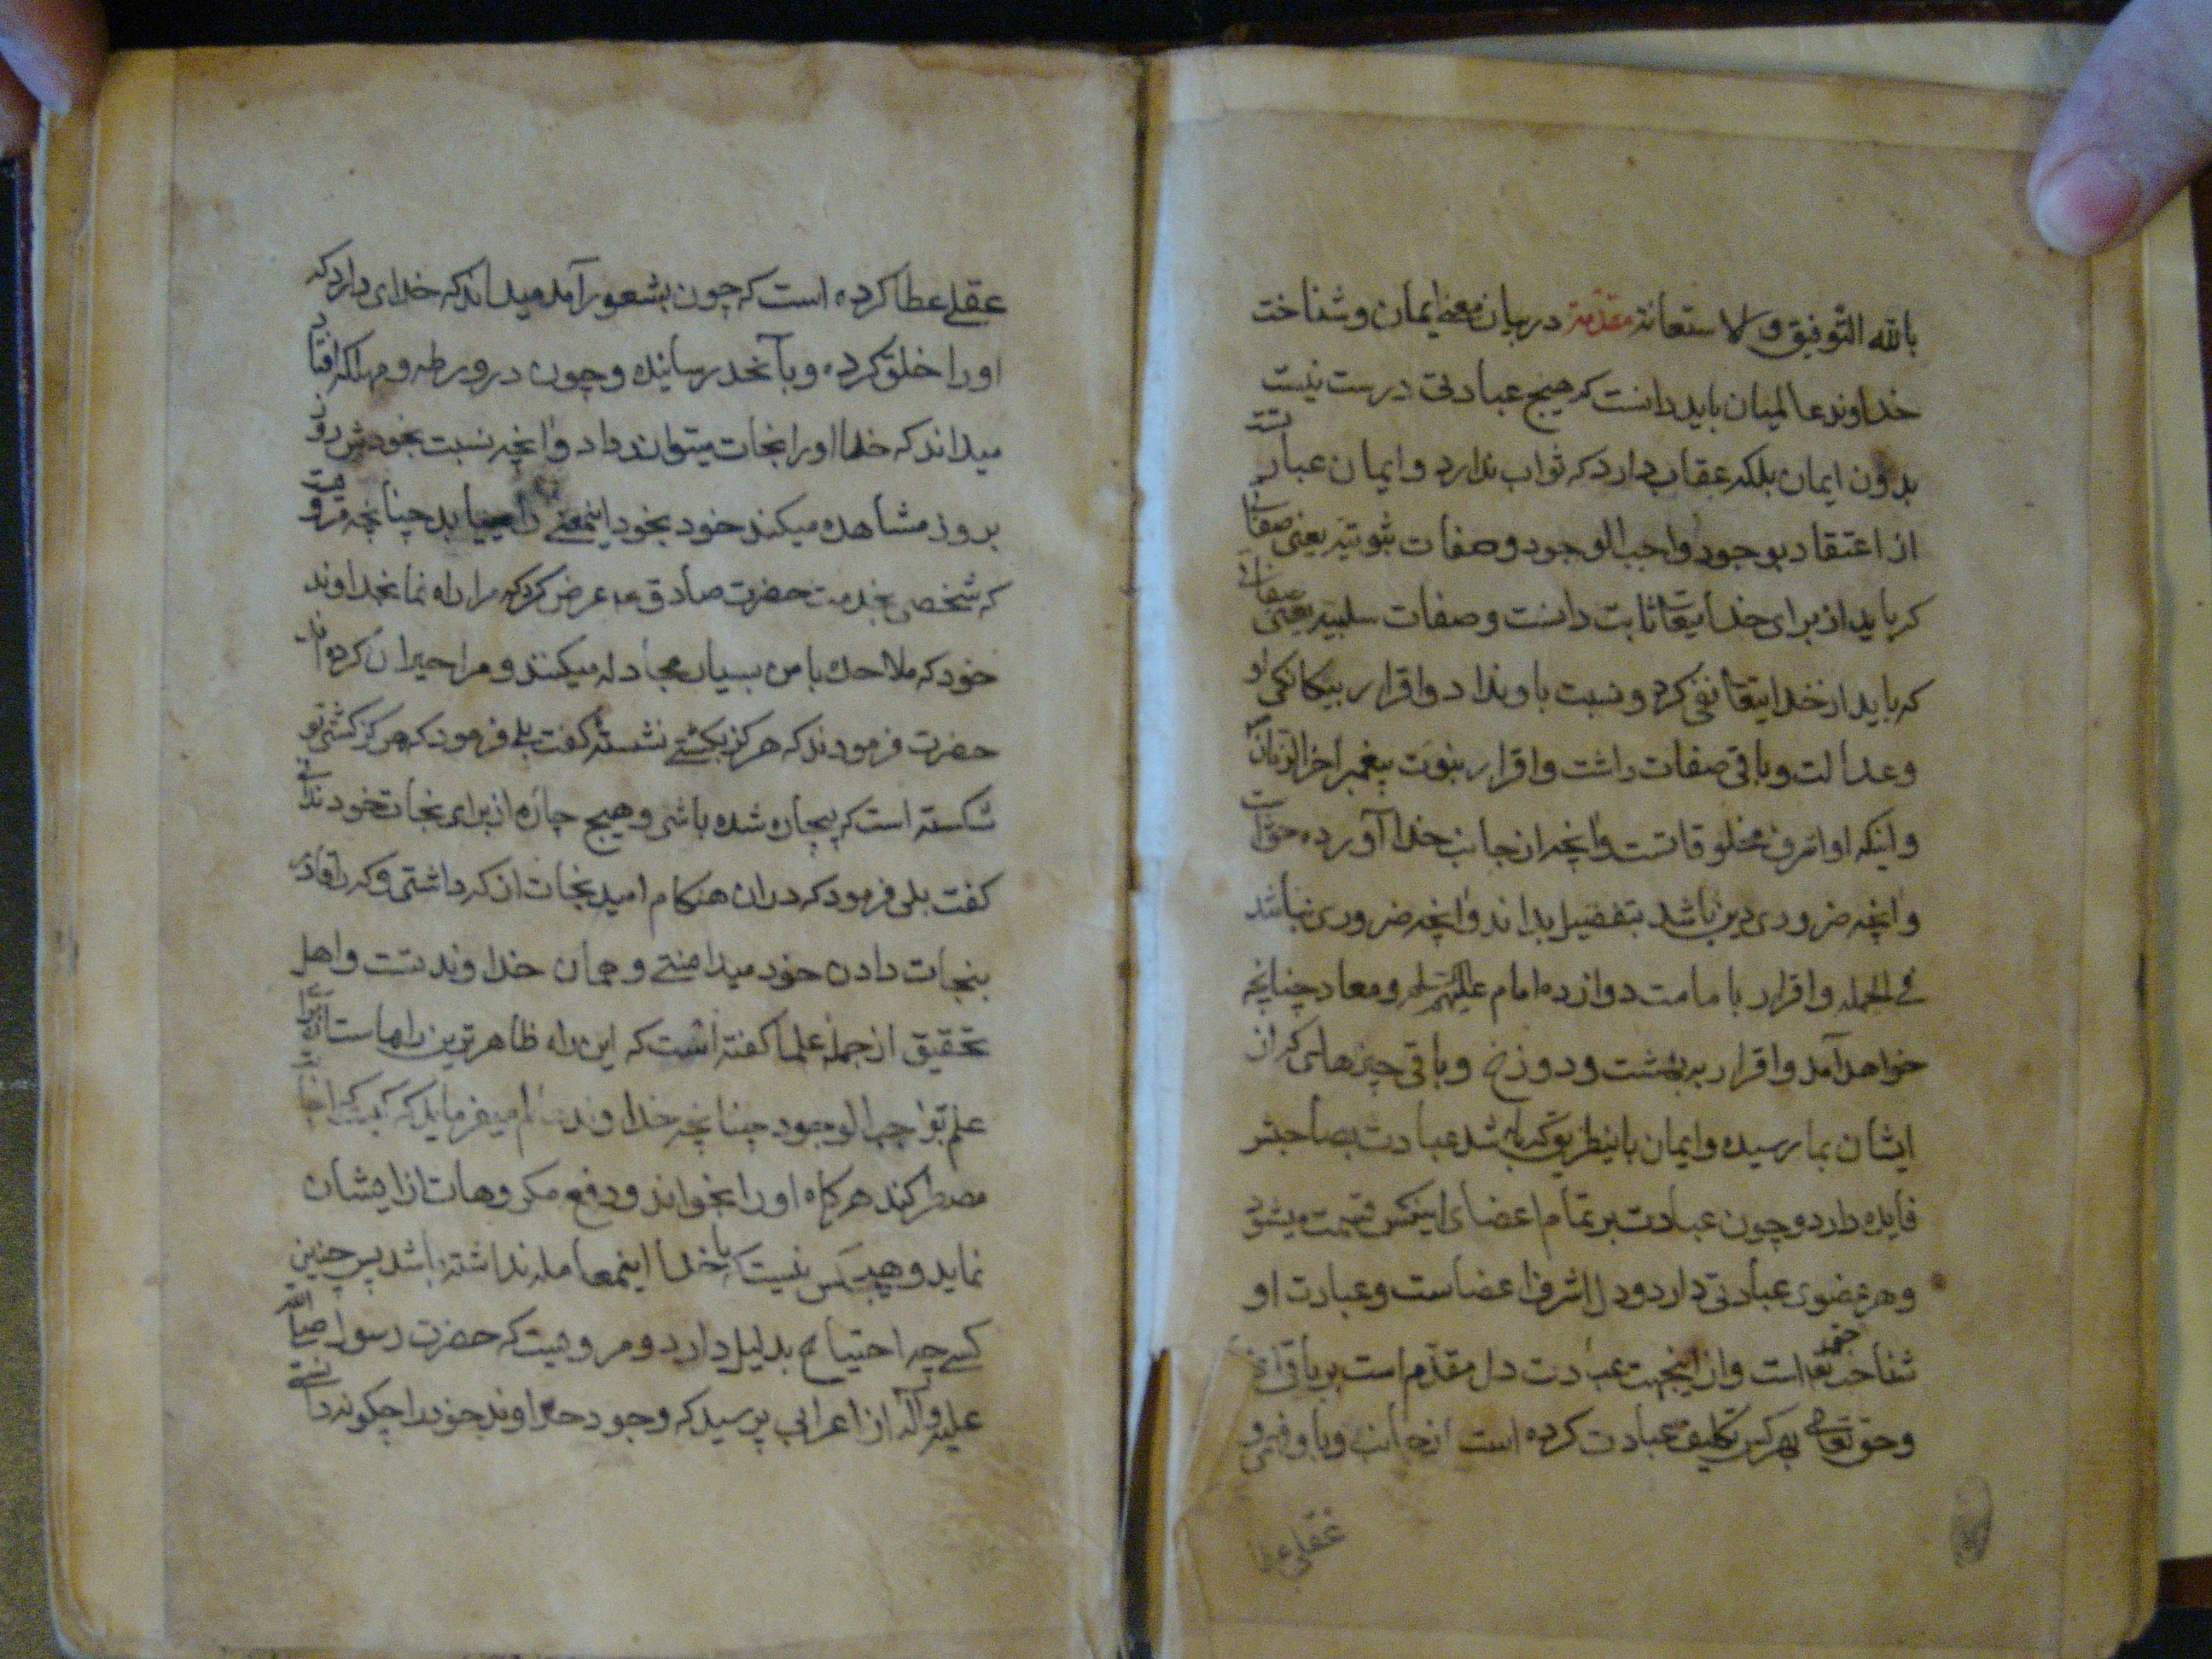 بالله التوفیق والاستعانة مقدمة در بیان معنی ایمان و شناخت
خداوند عالمیان باید دانست که هیچ عبادتی درست نیست
بدون ایمان بلکه عقاب دارد که ثواب ندارد و ایمان عبارتست
از اعتقاد بوجود واجب الوجود و صفات ثبوتیه یعنی صفاتی
که باید از برای خدایتعا ثابت دانست و صفات سلبیه یعنی صفاتی
که باید از خدایتعا نفی کرد و نسبت باو نداد و اقرار بیکانکی او
و عدالت و باقی صفات داشت و اقرار بنبوت پیغمبر اخر الزمان
و اینکه او اشرف مخلوقاتست وانچه از جانب خدا آورده حق است
وانچه ضروری دین باشد بتفضیل بداند وانچه ضروری نباشد
فی الجمله و اقرار بامامت دوازده امام علیهم و معاد چنانچه
خواهد آمد و اقرار به بهشت و دوزخ و باقی چیزهای که از
ایشان بما رسیده و ایمان باینطریق که باشد عبادت بصاحبش
فایده دارد و چون عبادت بر تمام اعضای اینکس قسمت میشود
و هر عضوی عبادتی دارد و دل اشرف اعضاست و عبادت او
شناخت حقتعا است و از اینجهت عبادت دل مقدم است بر باقی
و حق تعالی بهر کس تکلیف عبادت کرده است وباو فهمی و
عقلی عطا
عقلی عطا کرده است که چون بشعور آمد میداند که خدای دارد که
او را خلق کرده و بآنحد رسانیده و چون در ورطه و مهلکه افتاد
میداند که خدا او را نجات میتواند داد وانچه نسبت بخودش روز
بروز مشاهده میکند خود بخود اینمعنی را مییابد چنانچه مرویست
که شخصی بخدمت حضرت صادق عه عرض کرد که مرا راه نما بخداوند
خود که ملاحده با من بسیار مجادله میکنند و مرا حیران کرده اند
حضرت فرمودند که هرکز بکشتی نشستهٔ کفت بلی فرمود که هرکز کشتی تو
شکسته است که بیچاره شده باشی و هیچ چاره از برای نجات خود ندانی
کفت بلی فرمود که دران هنکام امید نجات از که داشتی و که را قادر
بنجات دادن خود میدانستی و همان خداوند تست و اهل
تحقیق از جمله علما کفته است که این راه ظاهر ترین راهاست از برای
علم بواجب الوجود چنانچه خداوند میفرماید که کیست که اجابت
مضطر کند هرکاه او را بخواند و دفع مکروهات از ایشان
نماید و هیچکس نیست که با خدا اینمعامله نداشته باشد پس چنین
کسی چه احتیاج بدلیل دارد و مرویست که حضرت رسول صلی الله
علیه و آله از اعرابی پرسید که وجود خداوند خود را چکونه دانستی